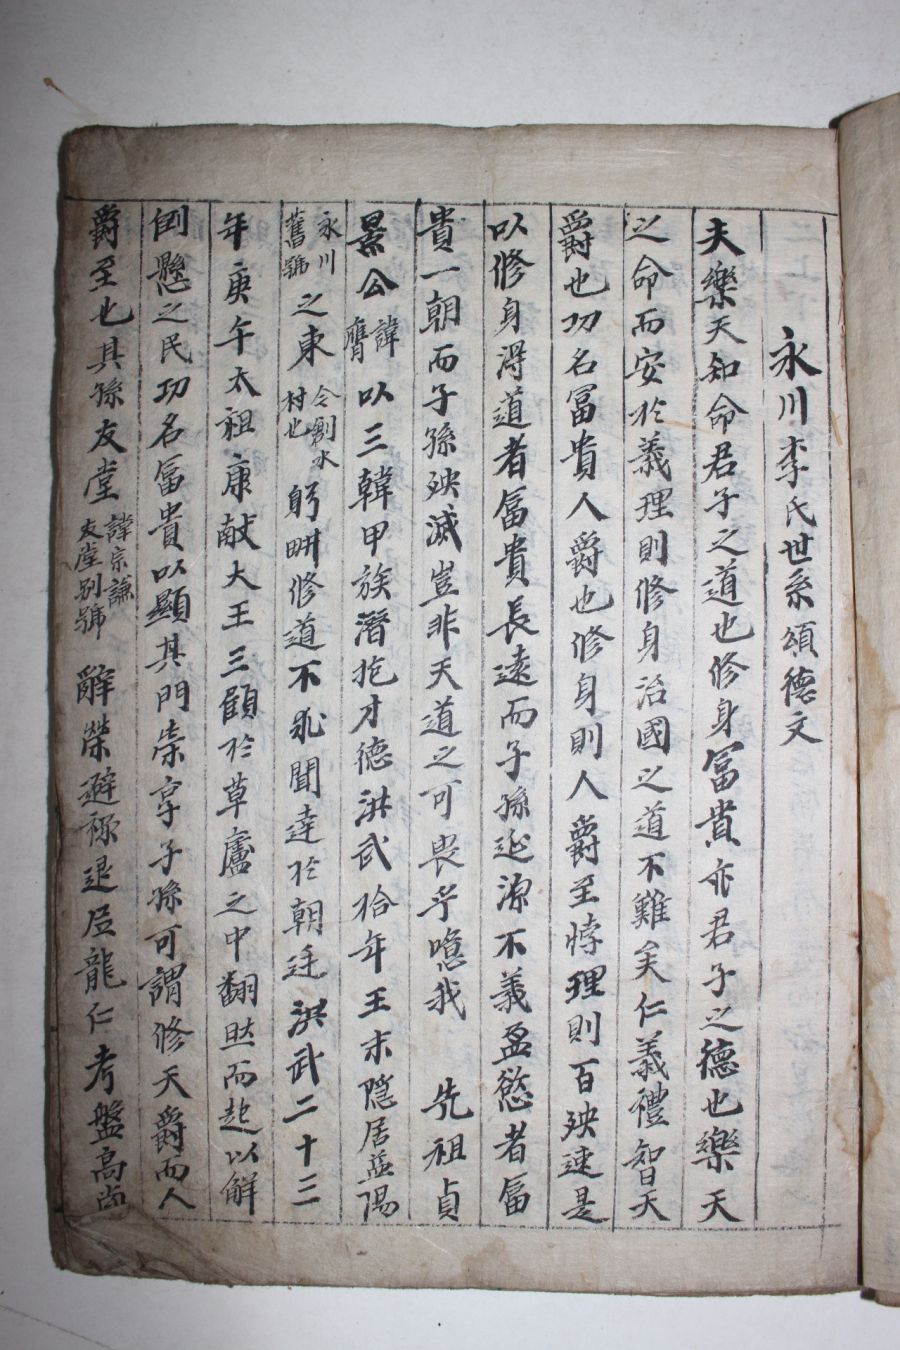 永川李氏世系頌德文
夫樂天知命君子之道也修身富貴亦君子之德也樂天
之命而安於義理則修身治國之道不難矣仁義禮智天
爵也功名富貴人爵也修身則人爵至悖理則百殃速是
以修身淂道者富貴長遠而子孫延源不義盈慾者富
貴一朝而子孫殃滅豈非天道之可畏乎噫我 先祖貞
景公諱膺以三韓甲族潛抱才德洪武拾年王末隱居益陽
永川舊號之東今劍水村也躬畊修道不求聞達於朝廷洪武二十三
年庚午太祖康献大王三顧於草廬之中翻然而起以解
倒懸之民功名富貴以顯其門崇享子孫可謂修天爵而人
爵至也其孫友堂諱宗謙友堂別號辭榮避祿退居龍仁考盤高尚